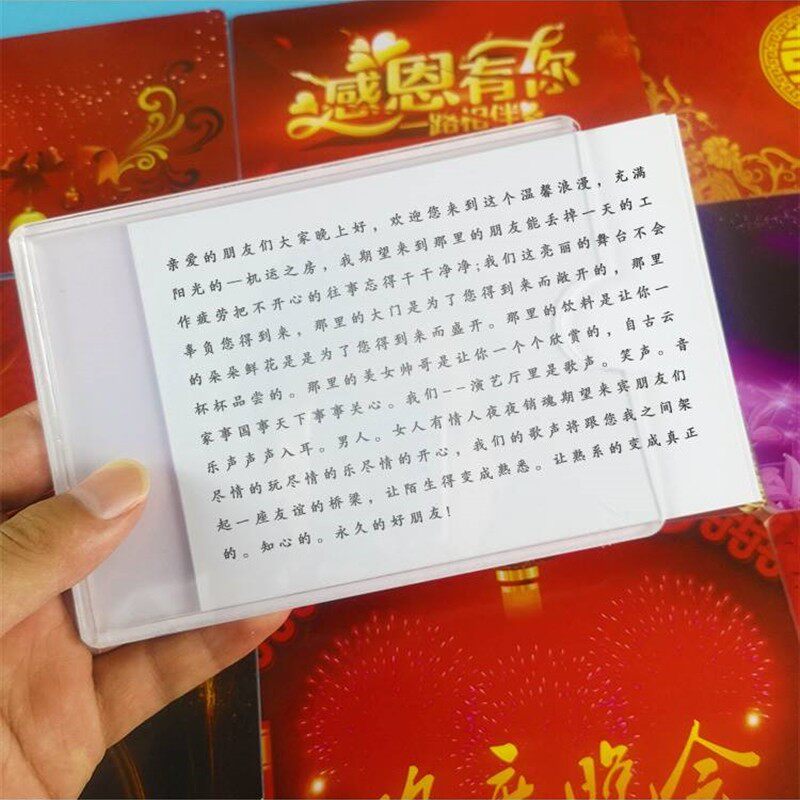 感恩有你
一路相伴
囍
亲爱的朋友们大家晚上好，欢迎您来到这个温馨浪漫，充满
阳光的一机运之房，我期望来到那里的朋友能丢掉一天的工
作疲劳把不开心的往事忘得干干净净;我们这亮丽的舞台不会
辜负您得到来，那里的大门是为了您得到来而敞开的，那里
的朵朵鲜花是是为了您得到来而盛开。那里的饮料是让你一
杯杯品尝的。那里的美女帅哥是让你一个个欣赏的，自古云
家事国事天下事事关心。我们--演艺厅里是歌声。笑声。音
乐声声声入耳。男人。女人有情人夜夜销魂期望来宾朋友们
尽情的玩尽情的乐尽情的开心，我们的歌声将跟您我之间架
起一座友谊的桥梁，让陌生得变成熟悉。让熟系的变成真正
的。知心的。永久的好朋友!
晚会